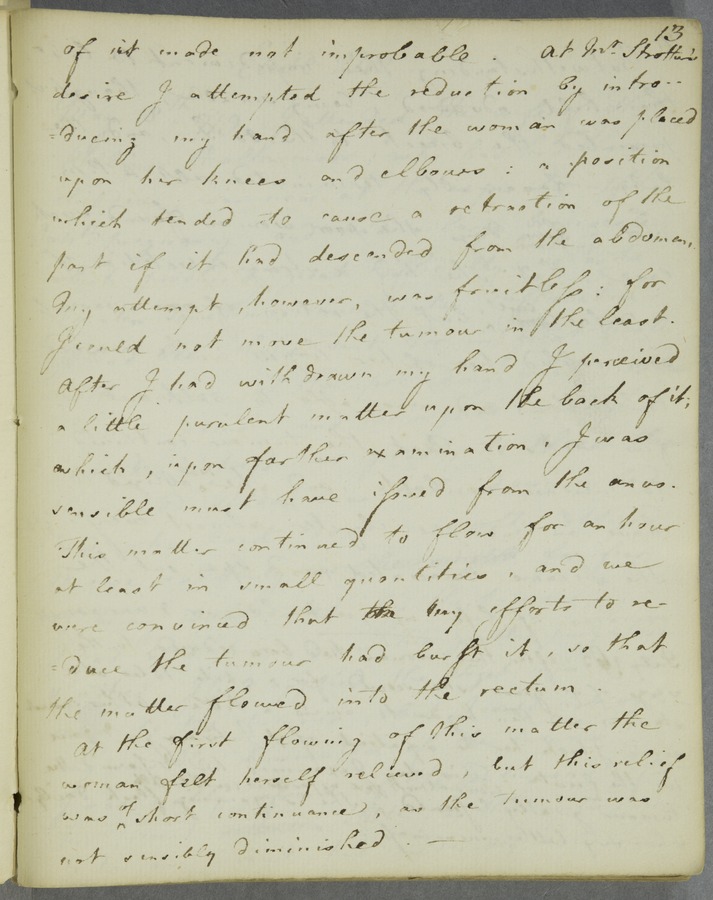 13
of it made not improbable. At Mr. Strother's
desire I attempted the reduction by intro--
=ducing my hand after the woman was placed
upon her knees and elbows: a position
which tended to cause a retraction of the
part if it had descended from the abdomen.
My attempt, however, was fruitless: for
I could not move the tumour in the least.
After I had withdrawn my hand I perceived
a little purulent matter upon the back of it;
which, upon farther examination, I was
sensible must have issued from the anus.
This matter continued to flow for an hour
at least in small quantities, and we
were convinced that the my efforts to re-
=duce the tumour had burst it, so that
the matter flowed into the rectum.
At the first flowing of this matter the
woman felt herself relieved, but this relief
was of short continuance, as the tumour was
not sensibly diminished. —